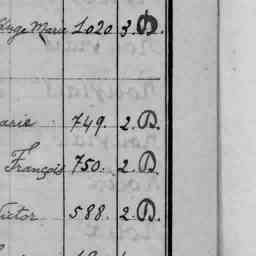 Marie 1020 3. D.
arie 749. 2. D.
François 750. 2. D.
ictor 588. 2. D.